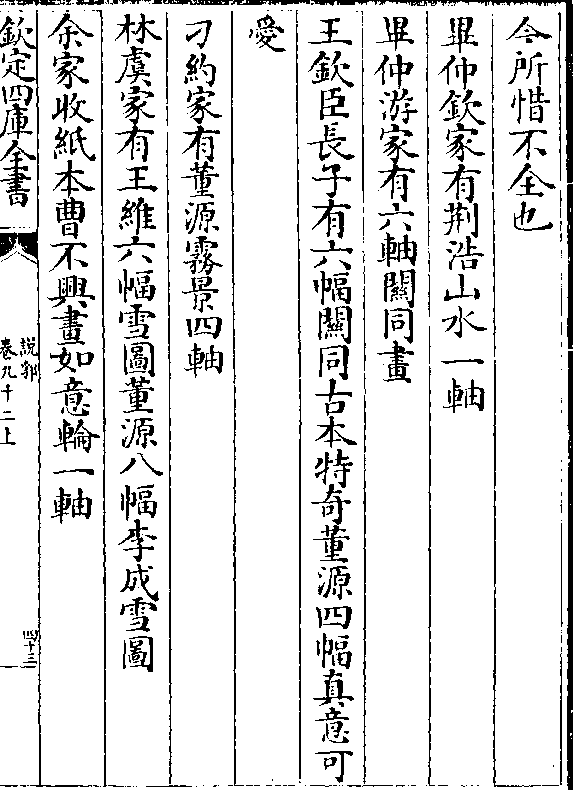 今所惜不全也
畢仲欽家有荆浩山水一軸
畢仲游家有六軸關同畫
王欽臣長子有六幅關同古本特奇董源四幅真意可
愛
刁約家有董源霧景四軸
林虞家有王維六幅雪圖董源八幅李成雪圖
余家收紙本曹不興畫如意輪一軸
欽定四庫全書
說郛
卷九十二上
四十三